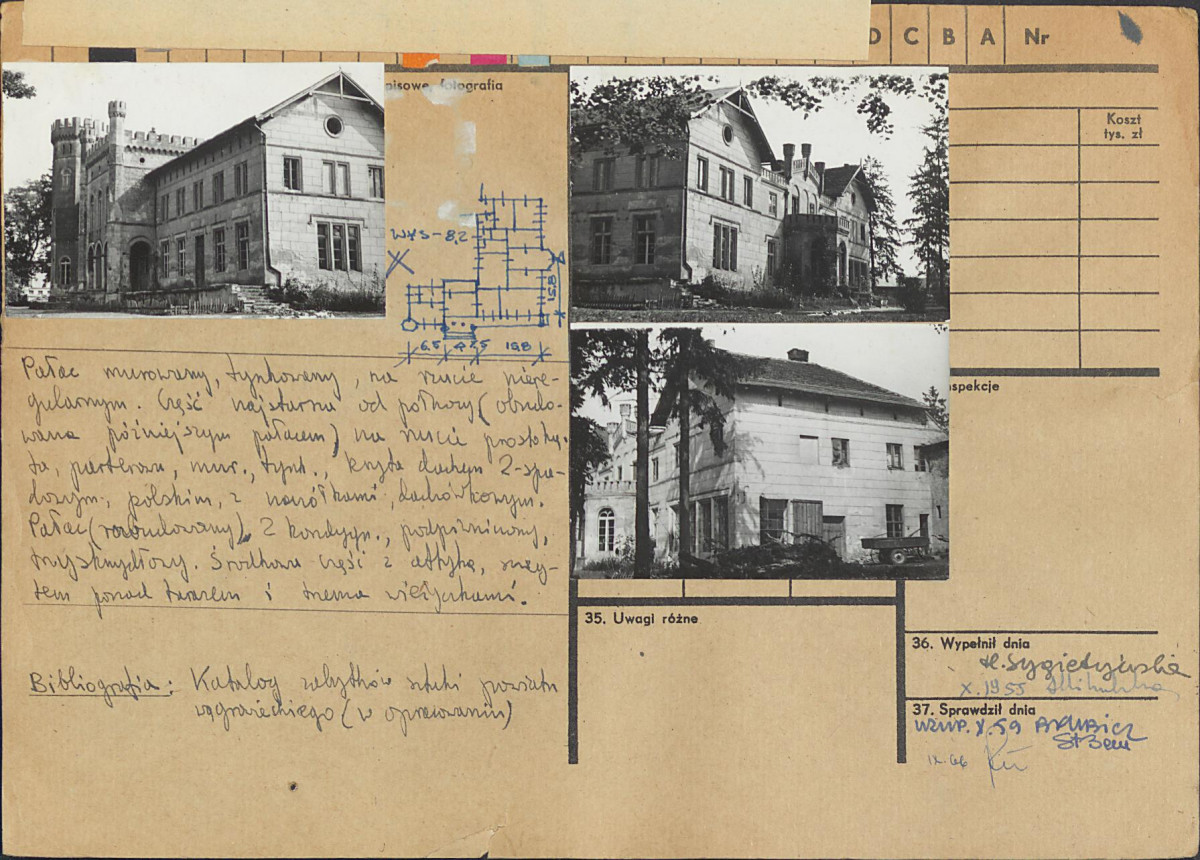 D C B A Nr
pisowe, fotografia
Koszt
tys. zł
WYS - 8,2
15,8
6,5 7,5 19,8
Pałac murowany, tynkowany, na rzucie niere-
gularnym. Część najstarsza od północy (obudo-
wana późniejszym pałacem) na rzucie prostoką-
ta, parterowa, mur., tynk., kryta dachem 2-spa-
dowym, polskim, z naczółkami, dachówkowym.
Pałac (rozbudowany), 2 kondygn., podpiwniczony,
trzyskrzydłowy. Środkowa część z attyką, szczy-
tem ponad tarasem i trzema wieżyczkami.
Bibliografia: Katalog zabytków sztuki powiatu
wągrowieckiego (w opracowaniu)
nspekcje
35. Uwagi różne
36. Wypełnił dnia
H. Sygietyńska
X. 1955
37. Sprawdził dnia
X. 59
St Bem
IX. 66